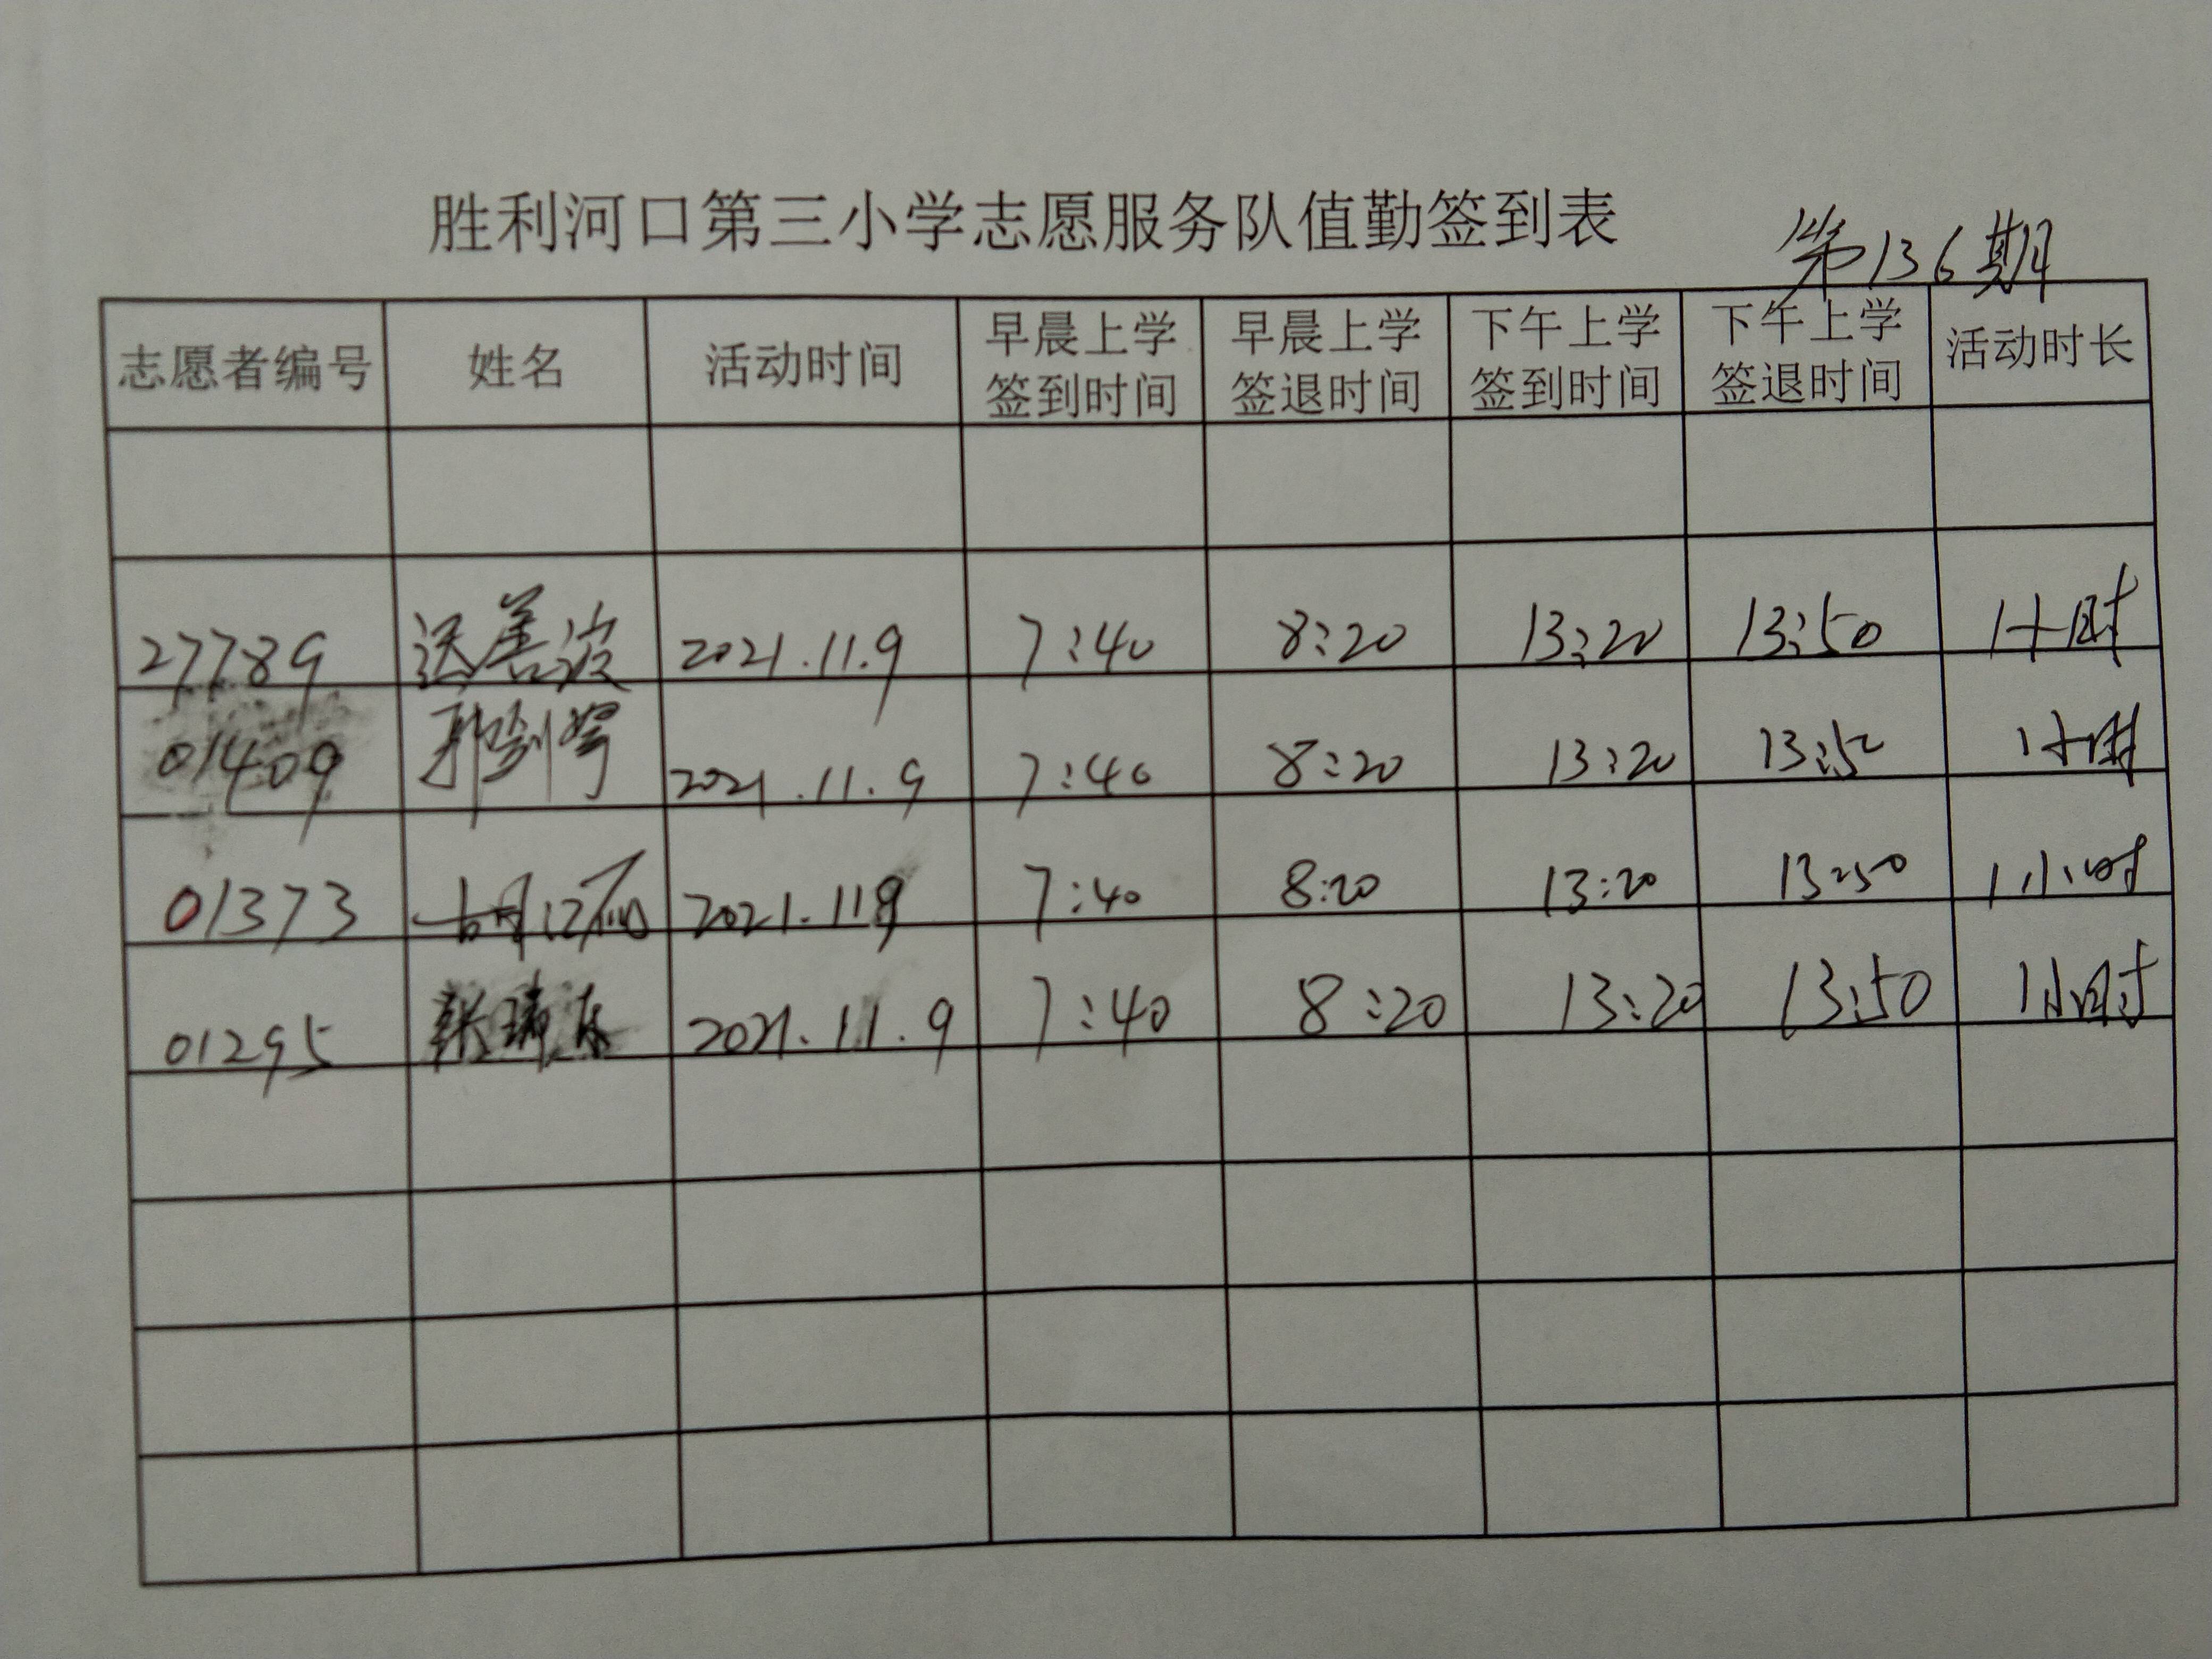 胜利河口第三小学志愿服务队值勤签到表
第136期
志愿者编号 姓名 活动时间 早晨上学签到时间 早晨上学签退时间 下午上学签到时间 下午上学签退时间 活动时长
27789 善波 2021.11.9 7:40 8:20 13:20 13:50 1小时
01409 郭剑 2021.11.9 7:40 8:20 13:20 13:50 1小时
01373 2021.11.9 7:40 8:20 13:20 13:50 1小时
01295 张 2021.11.9 7:40 8:20 13:20 13:50 1小时